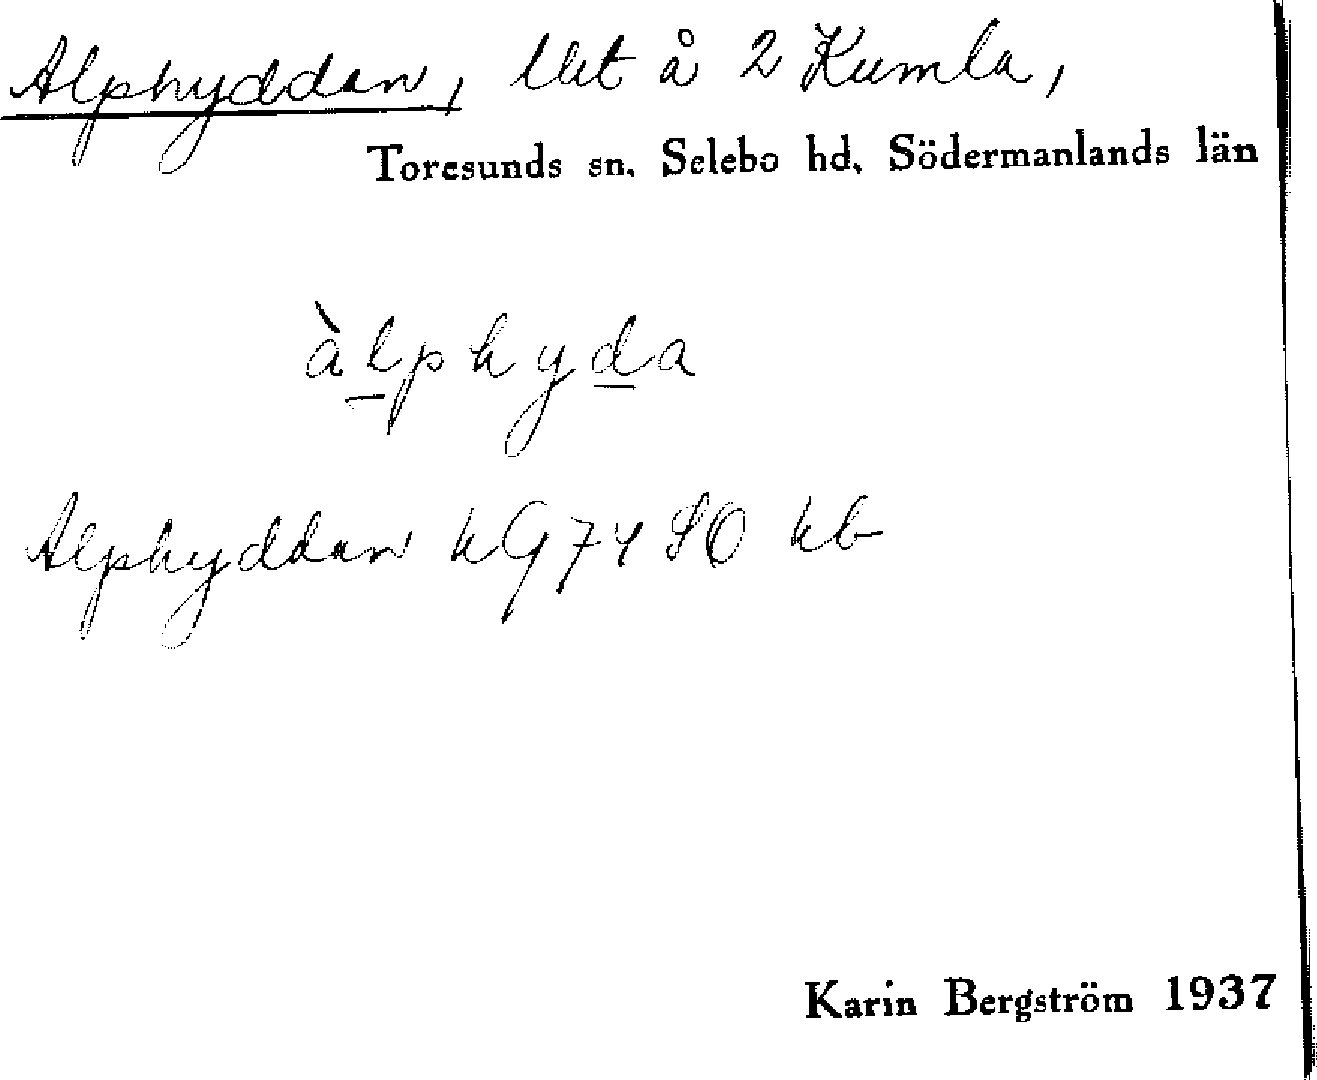 Alphyddan, lht å 2 Kumla,
Toresunds sn. Selebo hd. Södermanlands län
àlphyda
Alphyddan kG74 SO kb
Karin Bergström 1937